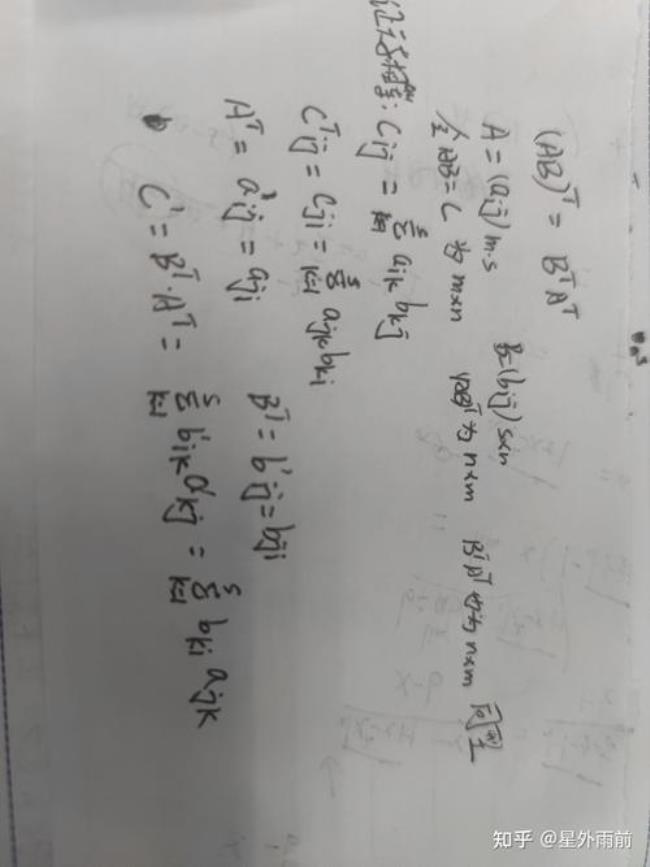 (AB)ᵀ = BᵀAᵀ
A = (aij) m·s B=(bij) s×n
令AB=C 为 m×n (AB)ᵀ为 n×m BᵀAᵀ也为n×m 同型
证元素相等: Cij = s∑k=1 aik bkj
Cᵀij = Cji = s∑k=1 ajk bki
Aᵀ = a'ij = aji Bᵀ = b'ij = bji
C' = Bᵀ·Aᵀ = s∑k=1 b'ik a'kj = s∑k=1 bki ajk
知乎 @星外雨前